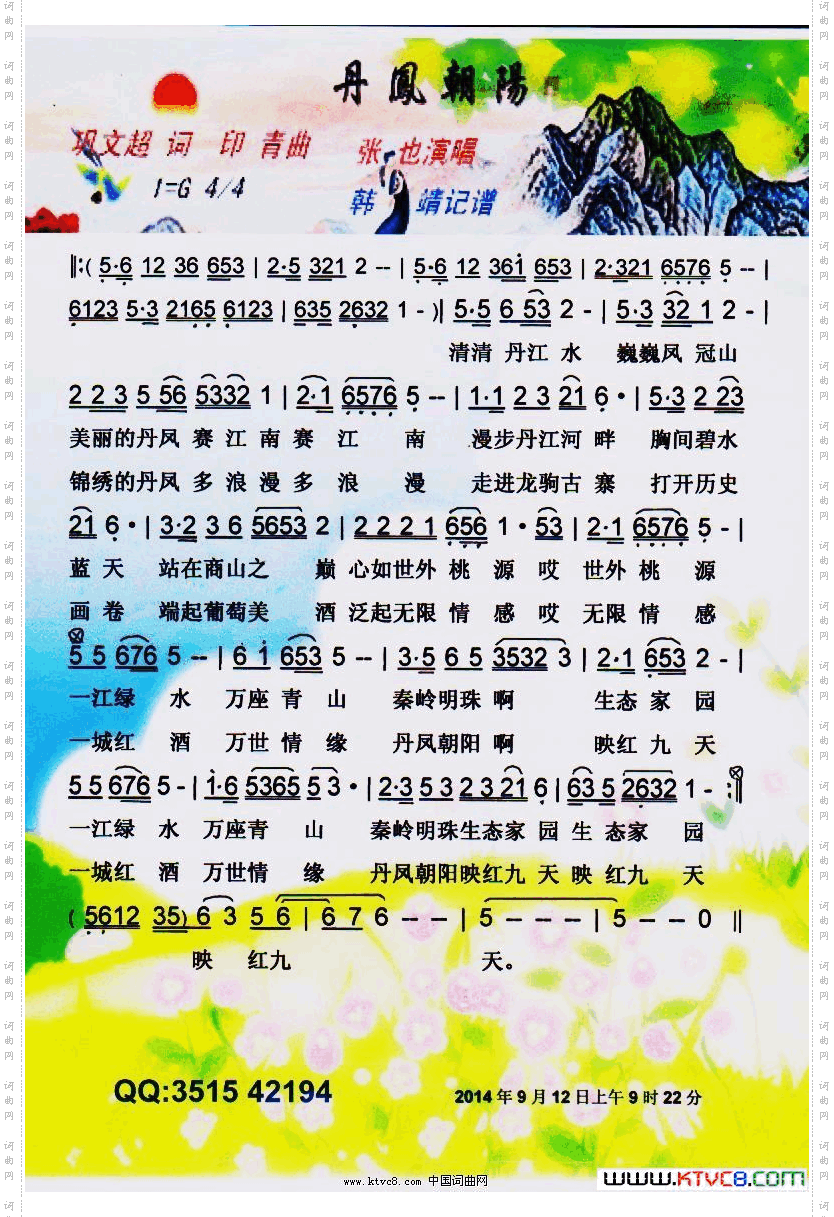 丹鳳朝陽
巩文超 词 印 青曲 张 也演唱
1=G 4/4 韩 靖记谱
‖:( 5·6 12 36 653 | 2·5 321 2 -- | 5·6 12 361 653 | 2·321 6576 5 -- |
6123 5·3 2165 6123 | 635 2632 1 - )‖ 5·5 6 53 2 - | 5·3 32 1 2 - |
清清 丹江 水 巍巍凤 冠山
2 2 3 5 56 5332 1 | 2·1 6576 5 -- | 1·1 2 3 21 6 · | 5·3 2 23
美丽的丹凤 赛 江 南 赛 江 南 漫步丹江河 畔 胸间碧水
锦绣的丹凤 多 浪 漫 多 浪 漫 走进龙驹古 寨 打开历史
21 6 · | 3·2 3 6 5653 2 | 2 2 2 1 656 1 · 53 | 2·1 6576 5 - |
蓝 天 站在商山之 巅 心如世外 桃 源 哎 世外 桃 源
画 卷 端起葡萄美 酒 泛起无限 情 感 哎 无限 情 感
5 5 676 5 -- | 6 1 653 5 -- | 3·5 6 5 3532 3 | 2·1 653 2 - |
一江绿 水 万座 青 山 秦岭明珠 啊 生态 家 园
一城红 酒 万世 情 缘 丹凤朝阳 啊 映红 九 天
5 5 676 5 - | 1·6 5365 5 3 · | 2·3 5 3 2 3 21 6 | 63 5 2632 1 - :‖
一江绿 水 万座青 山 秦岭明珠生态家 园 生 态家 园
一城红 酒 万世情 缘 丹凤朝阳映红九 天 映 红九 天
( 5612 35) 6 3 5 6 | 6 7 6 -- | 5 --- | 5 -- 0 ‖
映 红九 天。
QQ:3515 42194 2014年9月12日上午9时22分
www.ktvc8.com 中国词曲网
www.KTVC8.com